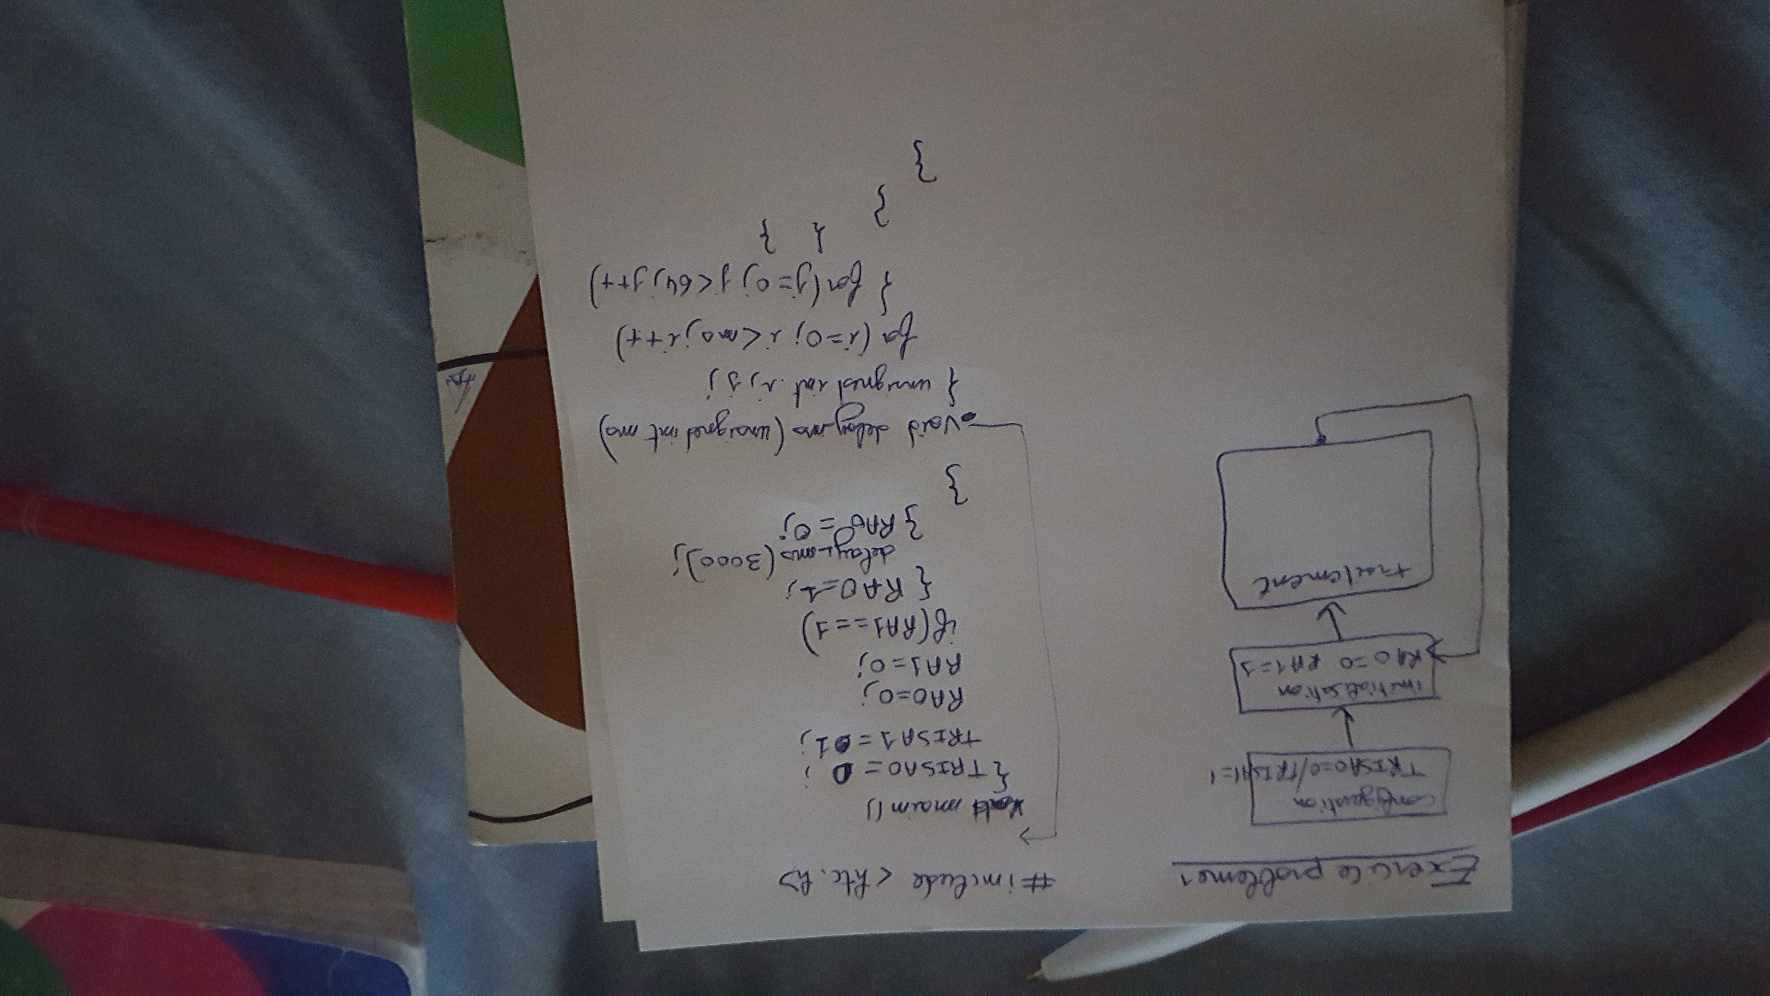 Exercice problemes
configuration
TRISA0=0/TRISA1=1
initialisation
RA0=0 RA1=1
traitement
#include <htc.h>
void main()
{ TRISA0= 0 ;
TRISA1=01;
RA0=0;
RA1=0;
if(RA1==1)
{ RA0=1;
delay_ms(3000);
} RA0=0;
}
void delay_ms(unsigned int ms)
{ unsigned int i, j;
for(i=0; i<ms; i++)
{ for(j=0; j<64; j++)
{ }
}
}